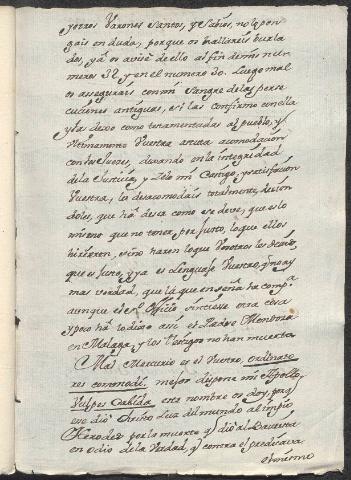 y otros Varones Santos, y Sabios, no la pon
gais en duda, porque os hallareis burla
dos, ya os avise de ello al fin de mis nu
meros 32 y en el numero 30. Luego mal
os assegurais con mi sangre de las perse
cuciones antiguas, si las confirmo con ella
y las dexo como testamentadas al pueblo, y
Ultimamente Vuestra acomodacion
con los Jueces, durando en la integridad
de la Justicia, y Zelo mi Castigo, y satisfacion
Vuestra, los desacomodais totalmente, dicien
doles, que ha de ser como se deve, que es lo
mismo que no tener por justo, lo que ellos
hizieren, si no hazen lo que Vosotros les decis,
que es justo, y ya es lenguaje Vuestro, q no ay
mas verdad, que la que enseña la comp.a
aunque el S.to Officio sintiesse otra cosa
y esso ha lo dicho assi el Padre Mendoza
en Malaga, y los testigos no han muerto
Mal Mercurio es el Vuestro,
res commode, mejor dispone mi Apollo,
Vulpes Calida este nombre os doy, porq
ese dio Christo Luz del mundo al impio
Herodes por la muerte q dio al Bautista
en odio de la Verdad, q contra el predicava
el mismo